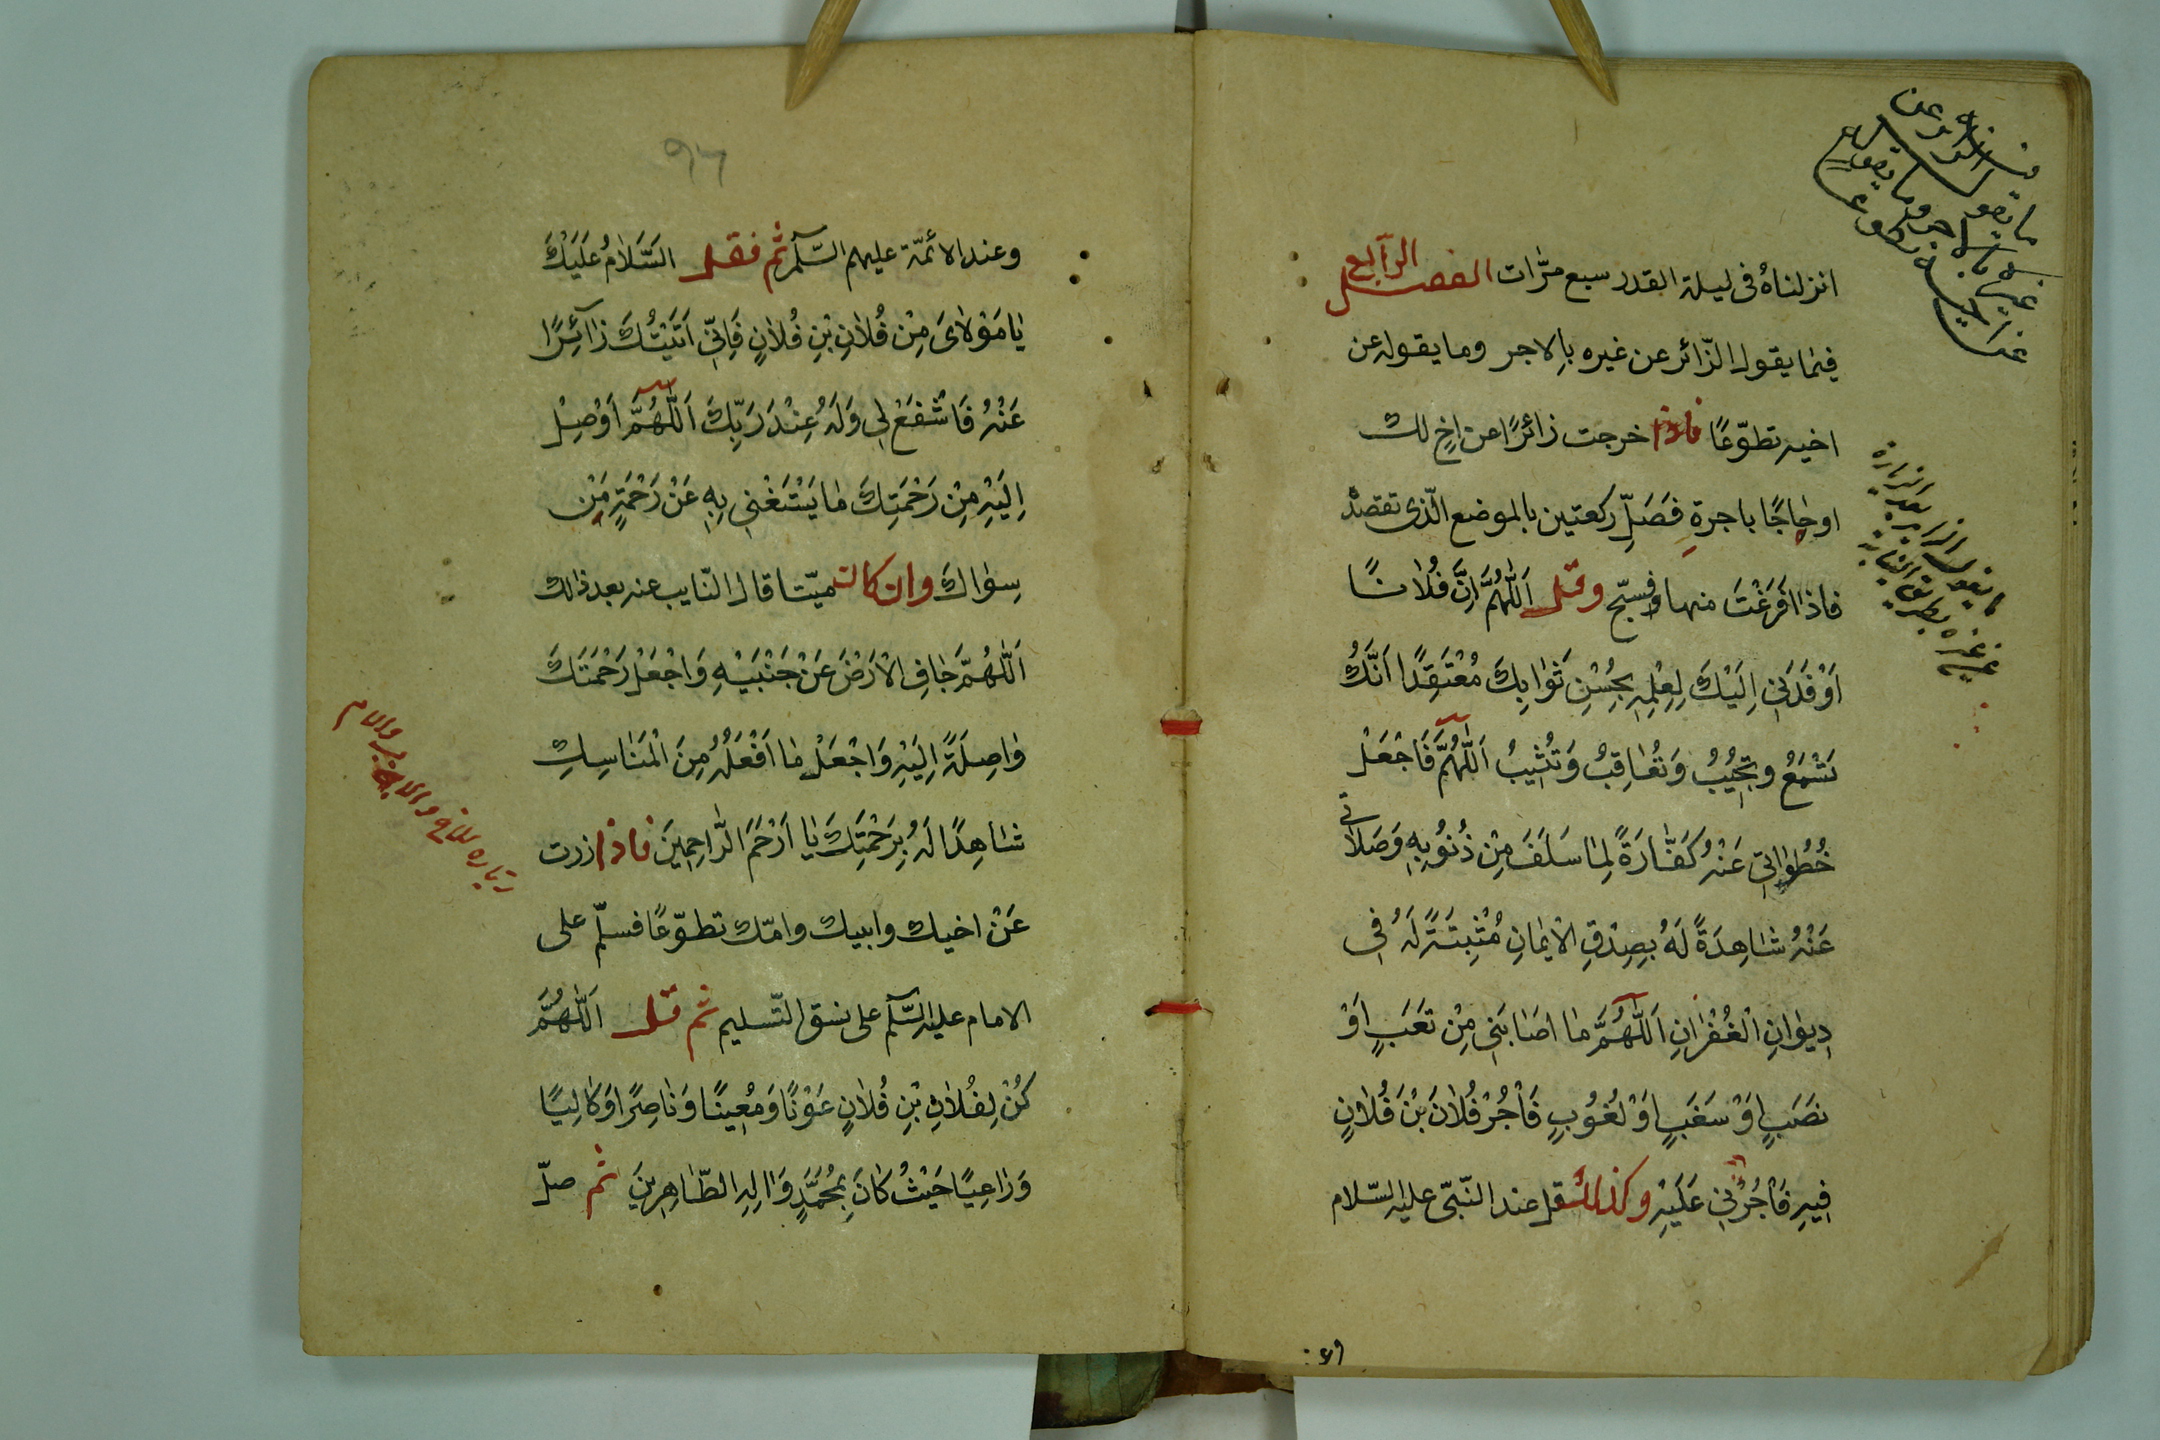 انزلناهُ فی لیلة القدر سبع مرّات الفصل الرّابع
فیمٰا یقول الزّائر عن غیره بِالاجر وما یقوله عن
اخیه تطوّعًا فاذا خرجت زائرًا عن اخٍ لك
او حٰاجًا باجرةٍ فَصَلِّ ركعتین بالموضع الّذی تقصدُ
فاذا فَرَغْتَ منها فسبّح وقل اَللّٰهُمَّ اِنَّ فُلٰانًا
اَوْفَدَنی اِلَیْكَ لِعِلْمِهِ بِحُسْنِ ثَوٰابِكَ مُعْتَقِدًا اَنَّكَ
تَسْمَعُ وتُجیٖبُ وَتُعٰاقِبُ وَتُثیٖبُ اَللّٰهُمَّ فَاجْعَلْ
خُطُوٰاتیٖ عَنْهُ كَفّٰارَةً لِمٰا سَلَفَ مِنْ ذُنُوبِهِ وَصَلاٰتی
عَنْهُ شٰاهِدَةً لَهُ بِصِدْقِ الْایٖمٰانِ مُثْبِتَةً لَهُ فِی
دیٖوٰانِ الْغُفْرٰانِ اَللّٰهُمَّ مٰا اَصٰابَنیٖ مِنْ تَعَبٍ اَوْ
نَصَبٍ اَوْ سَغَبٍ اَوْ لُغُوبٍ فَاْجُرْ فُلٰانَ بْنَ فُلٰانٍ
فیٖهِ فَاْجُرْنیٖ عَلَیْهِ وكذلك فقل عند النّبیّ علیه السّلام
وعند الائمّة علیهم السّلم ثم فقل السَّلٰامُ عَلَیْكَ
یٰا مَوْلٰایَ مِنْ فُلٰانِ بْنِ فُلٰانٍ فَاِنّیٖ اَتَیْتُكَ زٰائِرًا
عَنْهُ فَاشْفَعْ لیٖ وَلَهُ عِنْدَ رَبِّكَ اَللّٰهُمَّ اَوْصِلْ
اِلَیْهِ مِنْ رَحْمَتِكَ مٰا یَسْتَغْنیٖ بِهِ عَنْ رَحْمَةِ مَنْ
سِوٰاكَ وان كان میّتا قال النّایب عنه بعد ذالك
اَللّٰهُمَّ جٰافِ الْاَرْضَ عَنْ جَنْبَیْهِ وَاجْعَلْ رَحْمَتَكَ
وٰاصِلَةً اِلَیْهِ وَاجْعَلْ مٰا اَفْعَلُهُ مِنَ الْمَنٰاسِكِ
شٰاهِدًا لَهُ بِرَحْمَتِكَ یٰا اَرْحَمَ الرّٰاحِمیٖنَ فاذا زرت
عَنْ اخیك وابیك وامّك تطوّعًا فسلّم علی
الامام علیه السّلم علی نسق التّسلیم ثم قل اَللّٰهُمَّ
كُنْ لِفُلٰانِ بْنِ فُلٰانٍ عَوْنًا وَمُعیٖنًا وَنٰاصِرًا وَكٰالِیًا
وَرٰاعِیًا حَیْثُ كٰانَ بِمُحَمَّدٍ وَاٰلِهِ الطّٰاهِریٖنَ ثم صلّ